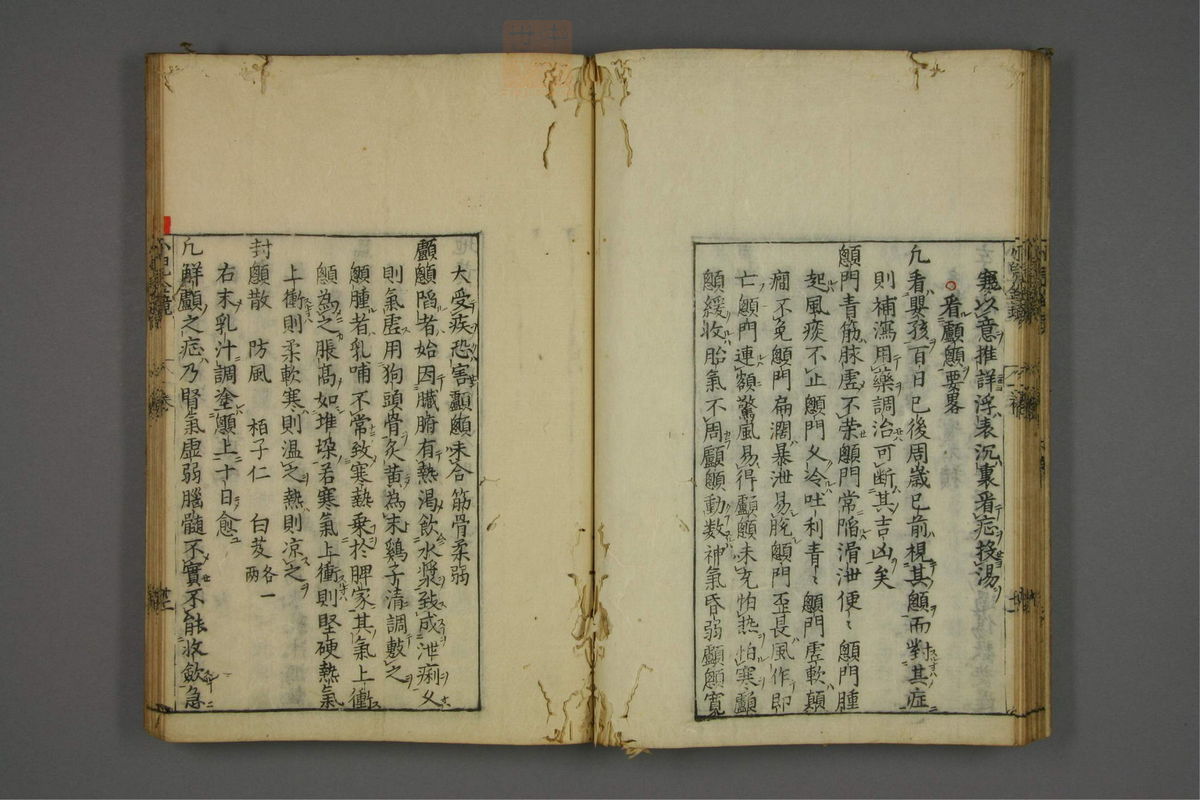 寇以意推詳浮表沉裏看症投湯
○看顱顖要畧
凢看嬰孩百日已後周歳已前視其顖而對其症
則補瀉用藥調治可断其吉凶矣
顖門青筋脉虚不榮顖門常陥滑泄便〻顖門腫
起風痰不止顖門久冷吐利青〻顖門虚軟顛
癇不免顖門扁濶暴泄易脫顖門歪長風作即
亡顖門連額驚風易得顱顖未充怕熱怕寒顱
顖緩收胎氣不周顱顖動数神氣昏弱顱顖寛
大受疾恐害顱顖未合筋骨柔弱
顱顖陷者始因臓腑有熱渴飲水漿致成泄痢久
則氣虚用狗頭骨灸黄為末鷄子清調敷之
顖腫者乳哺不常致寒熱乗於脾家其氣上衝
顖為之脹髙如堆垜若寒氣上衝則堅硬熱氣
上衝則柔軟寒則温之熱則凉之
封顖散 防風 栢子仁 白芨各一両
右末乳汁調塗顖上十日愈
凢解顱之症乃腎氣虚弱腦髓不實不能收歛急